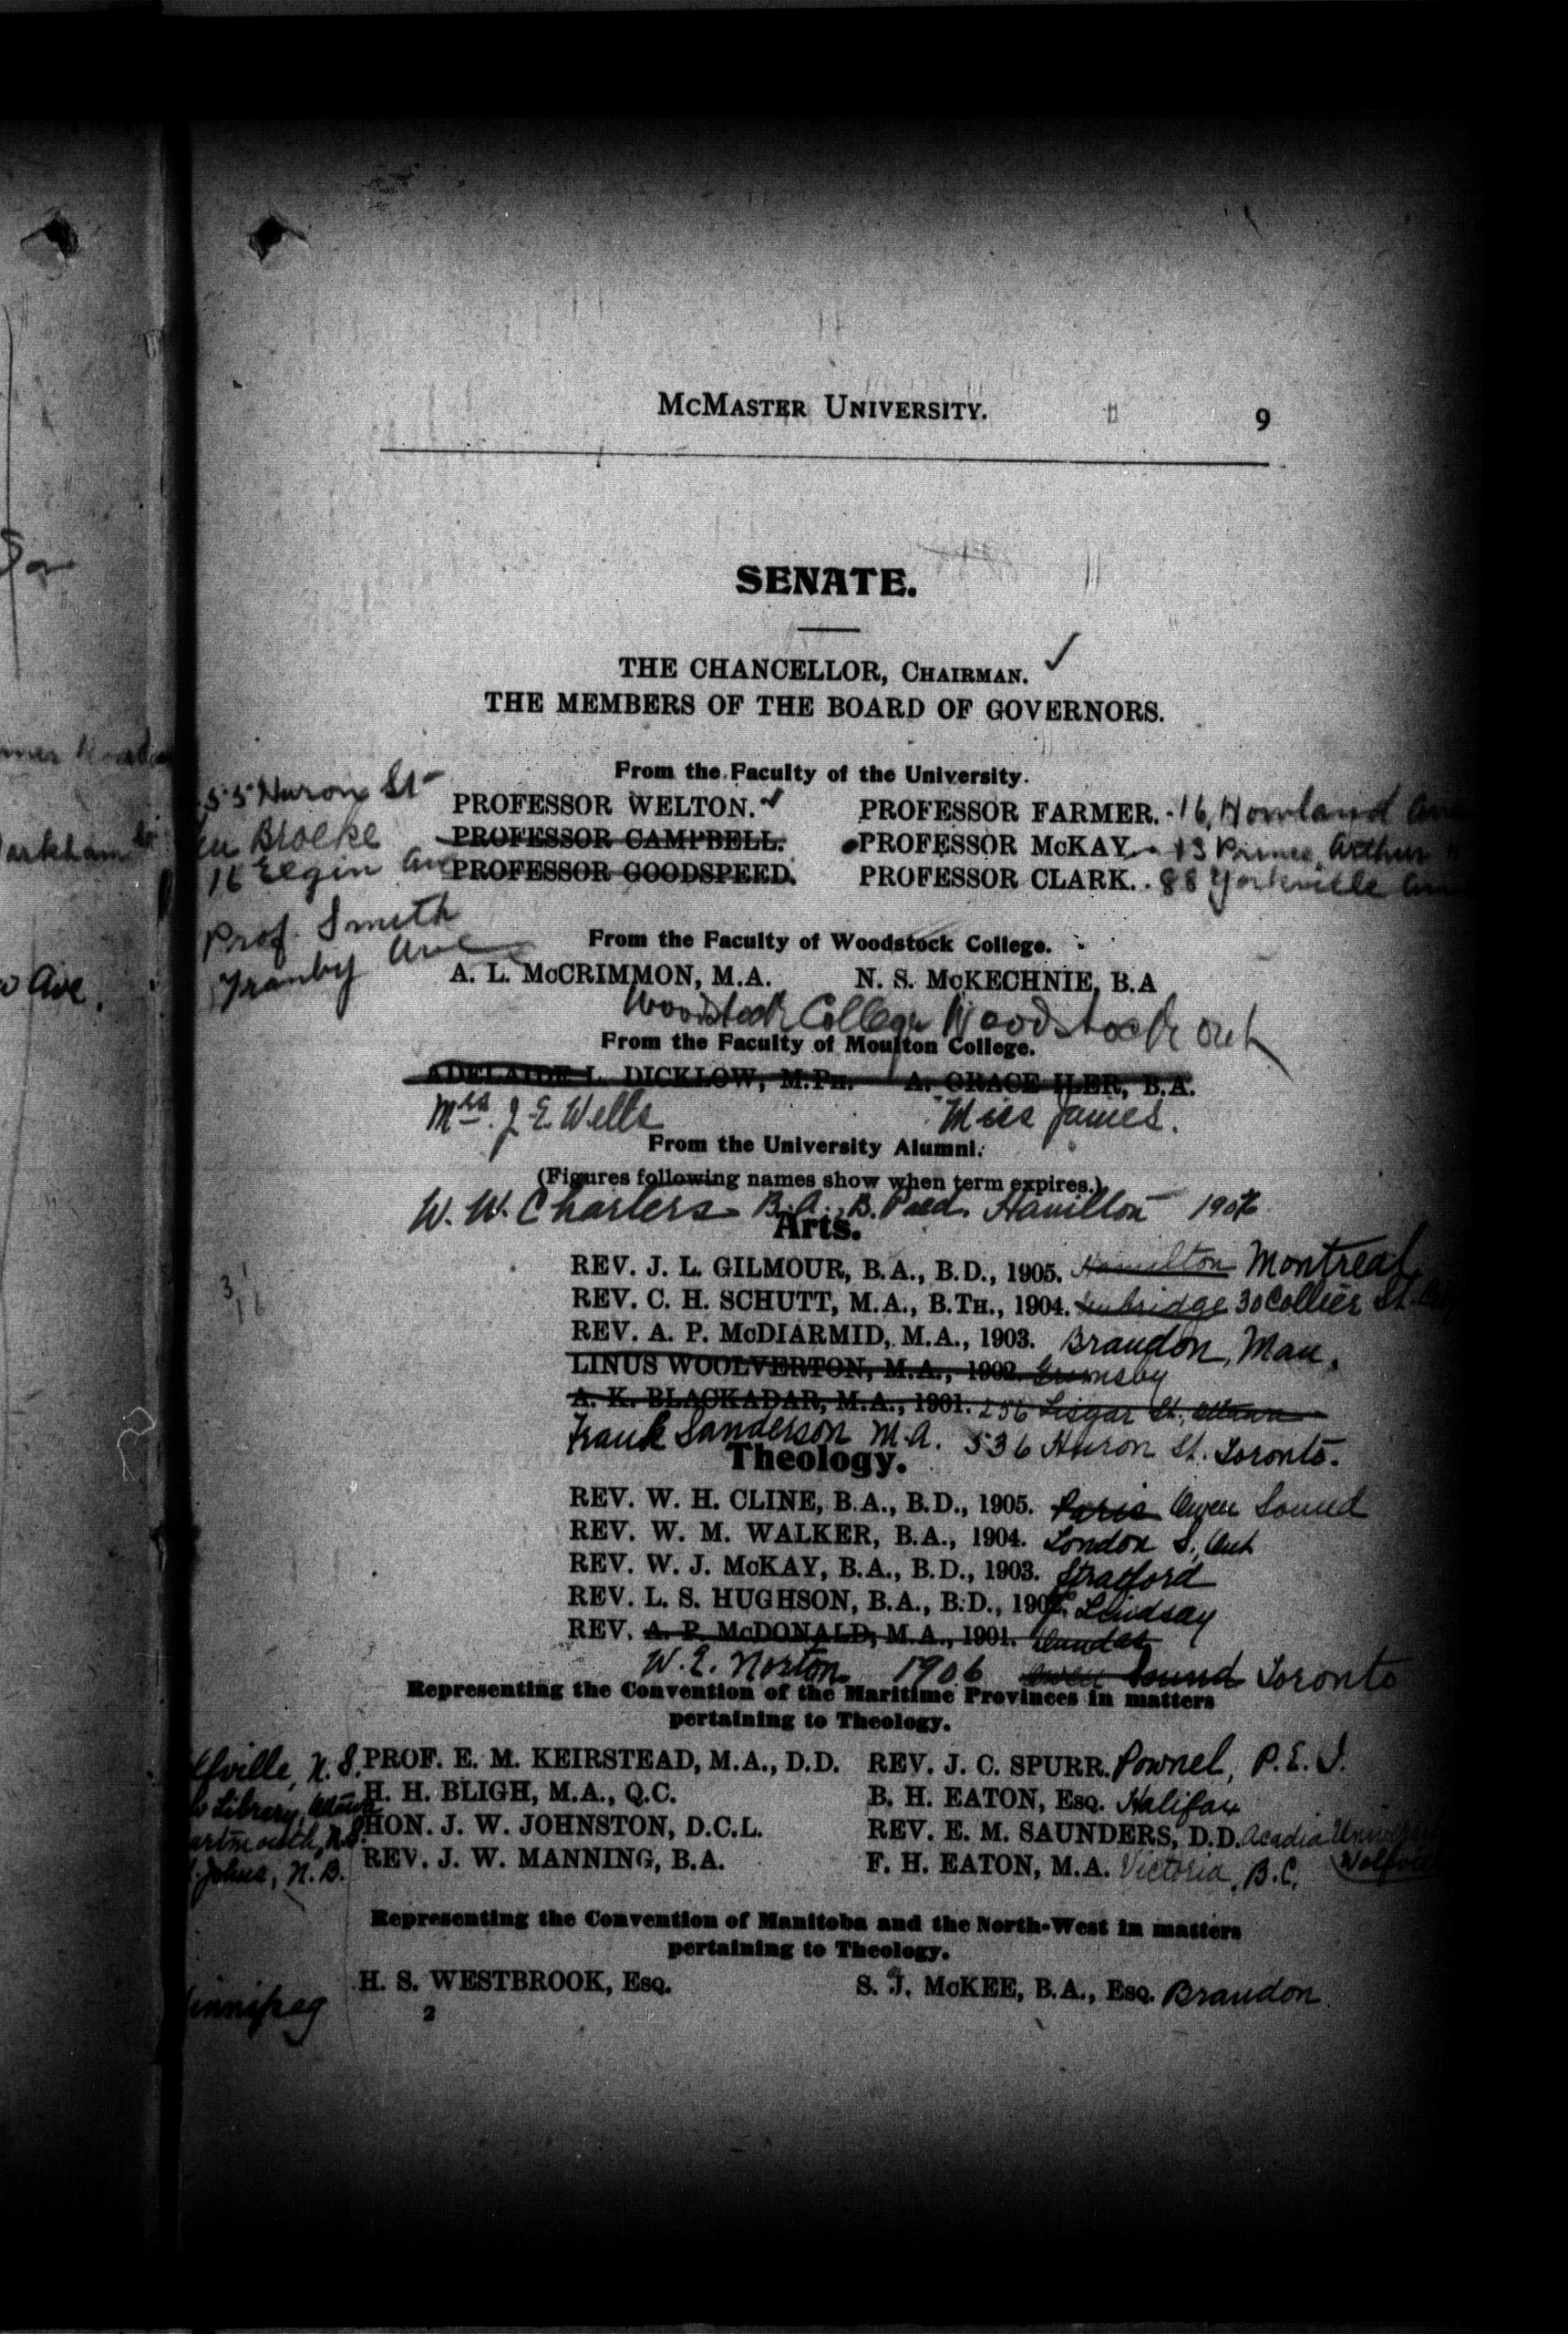 McMASTER UNIVERSITY. 9
SENATE.
THE CHANCELLOR, CHAIRMAN. ✓
THE MEMBERS OF THE BOARD OF GOVERNORS.
From the Faculty of the University.
55 Huron St PROFESSOR WELTON. ✓ PROFESSOR FARMER. 16 Howland Ave
Broeke PROFESSOR CAMPBELL. PROFESSOR McKAY. 13 Prince Arthur "
16 Elgin Ave PROFESSOR GOODSPEED. PROFESSOR CLARK. 88 Yorkville Ave
Prof. Smith
Tranby Ave
From the Faculty of Woodstock College.
A. L. McCRIMMON, M.A. N. S. McKECHNIE, B.A
Woodstock College Woodstock Ont
From the Faculty of Moulton College.
ADELAIDE L. DICKLOW, M.PH. A. GRACE ILER, B.A.
Mrs. J. E. Wells Miss James.
From the University Alumni.
(Figures following names show when term expires.)
W. W. Charters B.A., B. Paed. Hamilton 1906
Arts.
REV. J. L. GILMOUR, B.A., B.D., 1905. Hamilton Montreal
REV. C. H. SCHUTT, M.A., B.TH., 1904. 30 Collier St.
REV. A. P. McDIARMID, M.A., 1903. Brandon, Man.
LINUS WOOLVERTON, M.A., 1902. Grimsby
A. K. BLACKADAR, M.A., 1901. 256 Lisgar St., Ottawa
Frank Sanderson M.A. 536 Huron St. Toronto.
Theology.
REV. W. H. CLINE, B.A., B.D., 1905. Paris Owen Sound
REV. W. M. WALKER, B.A., 1904. London S. Ont
REV. W. J. McKAY, B.A., B.D., 1903. Stratford
REV. L. S. HUGHSON, B.A., B.D., 190 Lindsay
REV. A. P. McDONALD, M.A., 1901. Dundas
W. E. Norton 1906 Owen Sound Toronto
Representing the Convention of the Maritime Provinces in matters
pertaining to Theology.
lfville, N.S. PROF. E. M. KEIRSTEAD, M.A., D.D. REV. J. C. SPURR. Pownel, P.E.I.
Library, Ottawa H. H. BLIGH, M.A., Q.C. B. H. EATON, ESQ. Halifax
artmouth, N.S. HON. J. W. JOHNSTON, D.C.L. REV. E. M. SAUNDERS, D.D. Acadia University
Johns, N.B. REV. J. W. MANNING, B.A. F. H. EATON, M.A. Victoria, B.C. Wolfville
Representing the Convention of Manitoba and the North-West in matters
pertaining to Theology.
innipeg H. S. WESTBROOK, ESQ. S. J. McKEE, B.A., ESQ. Brandon
2